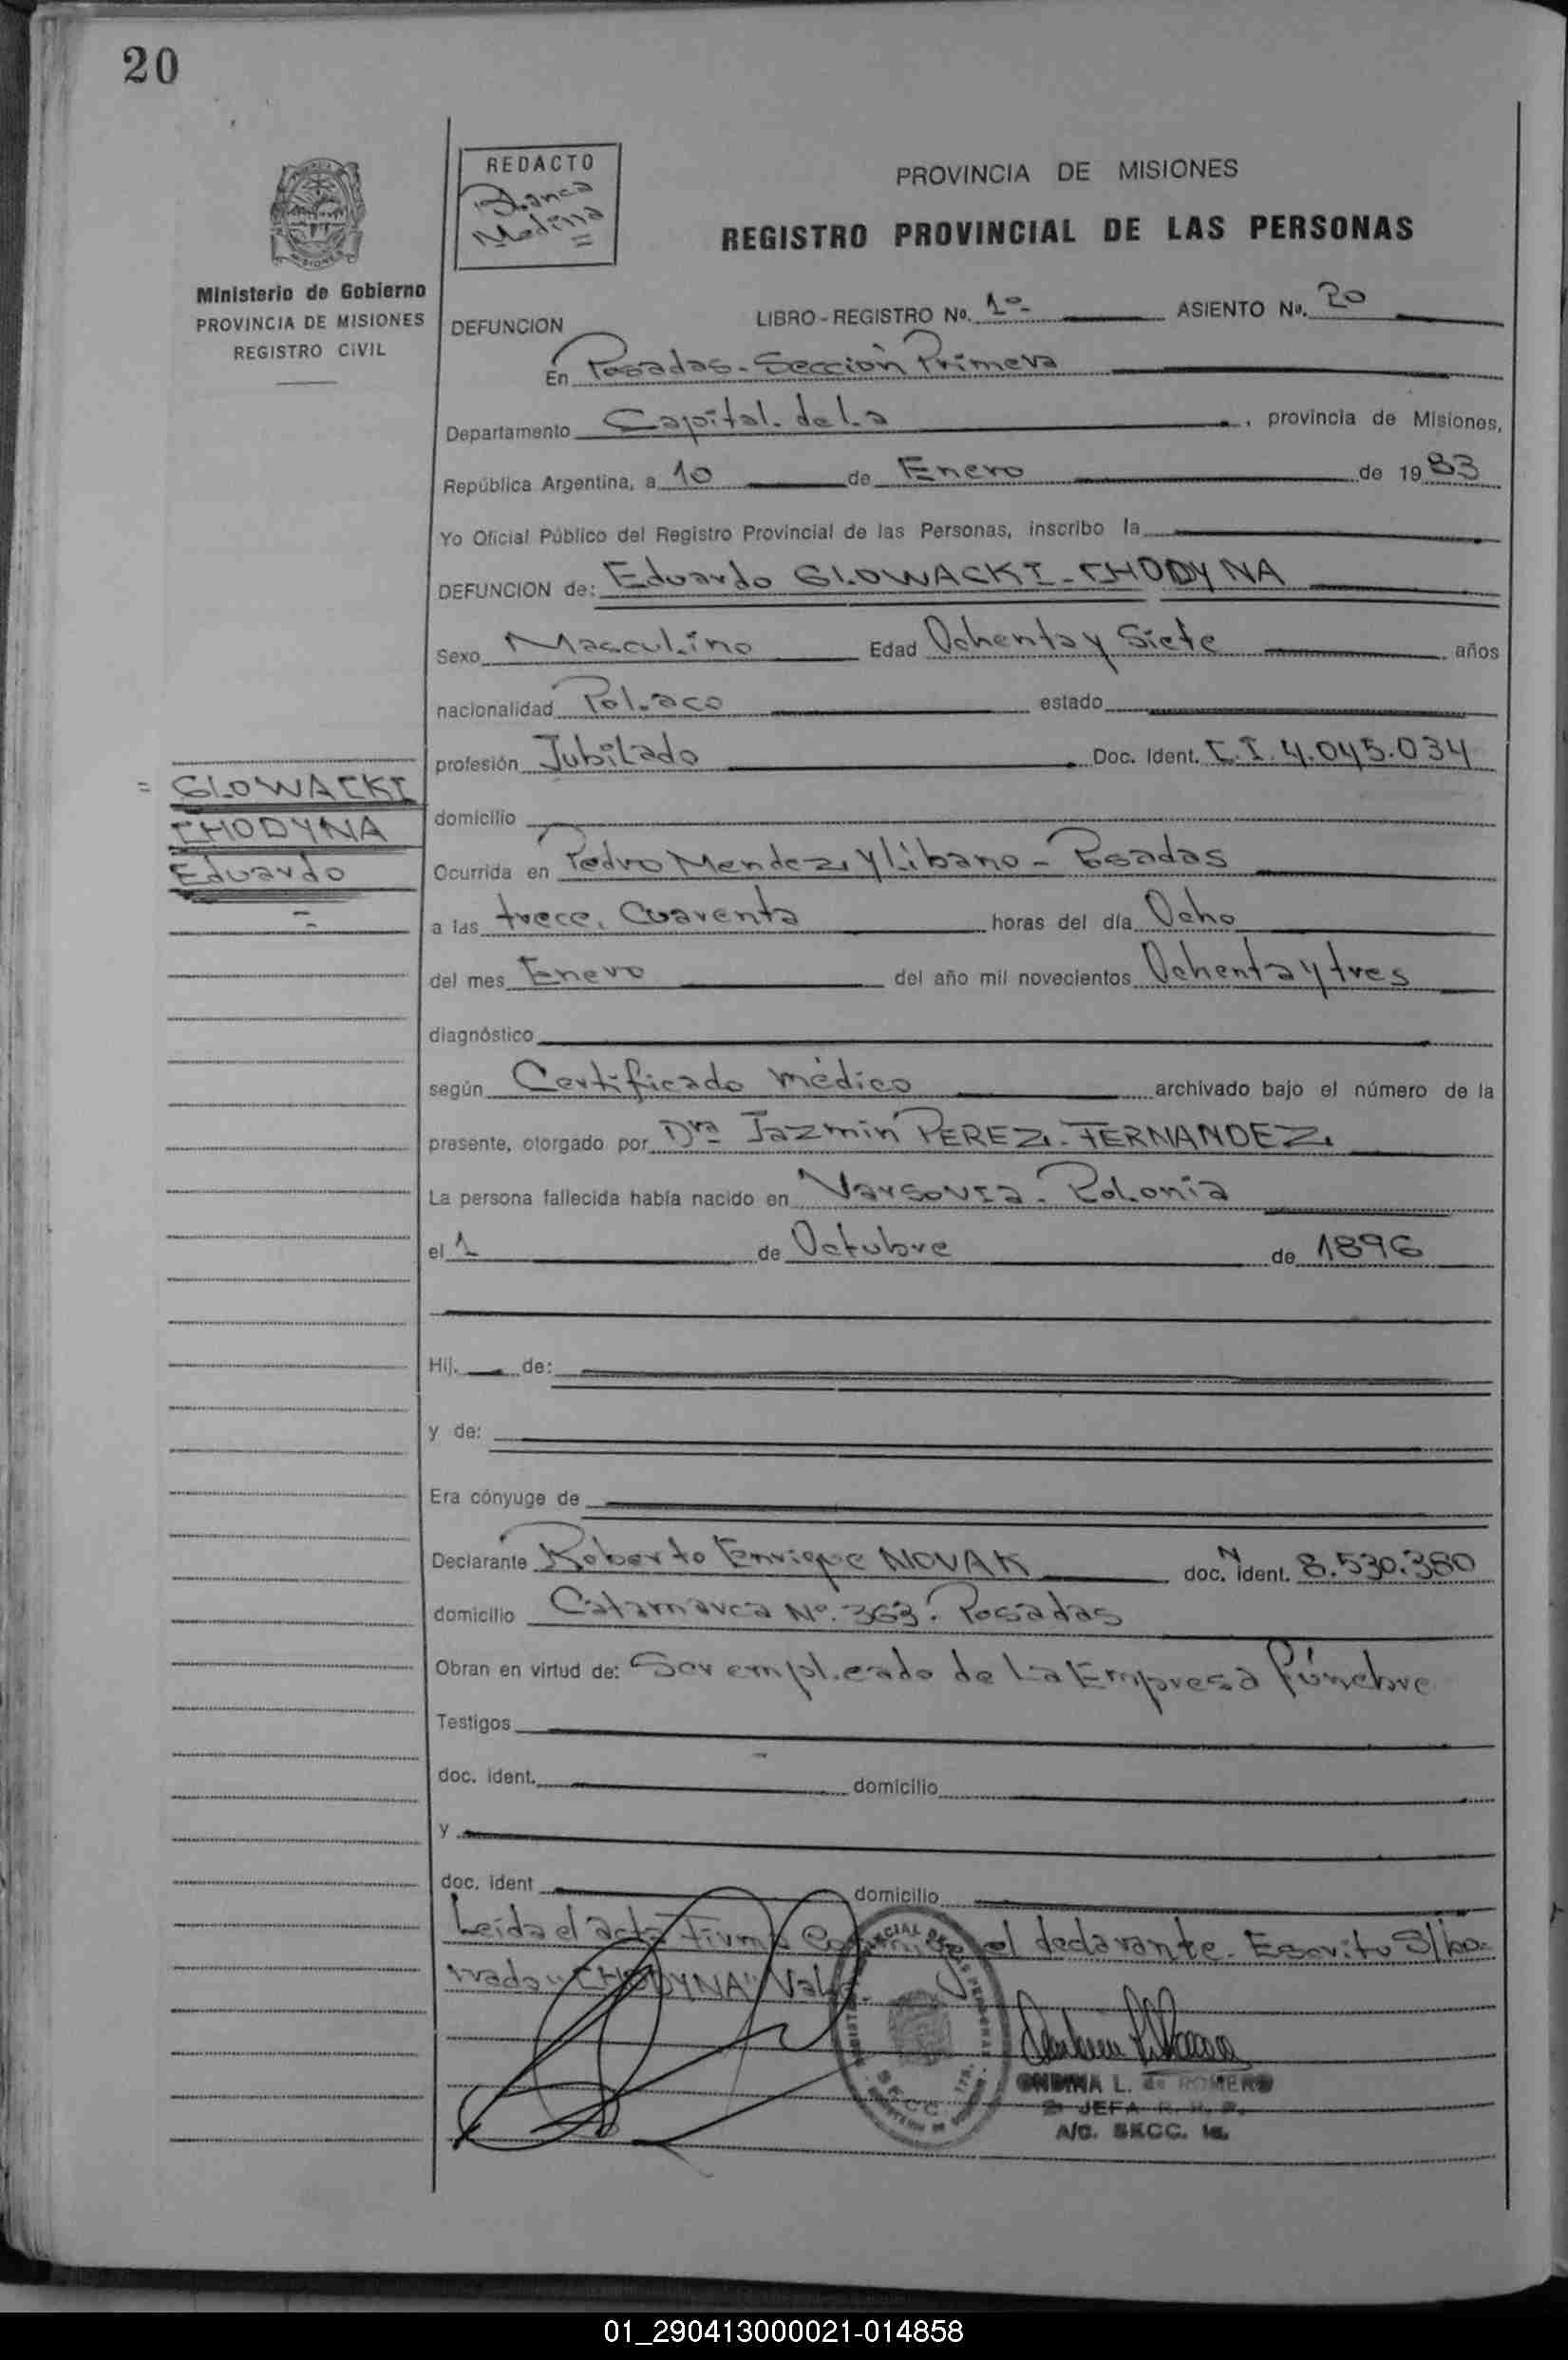 20
REDACTO
Blanca
Medina
PROVINCIA DE MISIONES
REGISTRO PROVINCIAL DE LAS PERSONAS
Ministerio de Gobierno
PROVINCIA DE MISIONES
REGISTRO CIVIL
DEFUNCION LIBRO-REGISTRO No. 1º ASIENTO No. 20
En Posadas-Sección Primera
Departamento Capital de la, provincia de Misiones,
República Argentina, a 10 de Enero de 1983
Yo Oficial Público del Registro Provincial de las Personas, inscribo la
DEFUNCION de: Eduardo GLOWACKI-CHODYNA
Sexo Masculino Edad Ochenta y Siete años
nacionalidad Polaco estado
profesión Jubilado Doc. Ident. C.I. 4.045.034
= GLOWACKI
CHODYNA
Eduardo
=
domicilio
Ocurrida en Pedro Mendez y Libano - Posadas
a las trece, Cuarenta horas del día Ocho
del mes Enero del año mil novecientos Ochenta y tres
diagnóstico
según Certificado médico archivado bajo el número de la
presente, otorgado por Dra Jazmin PEREZ-FERNANDEZ
La persona fallecida había nacido en Varsovia-Polonia
el 1 de Octubre de 1896
Hij. de:
y de:
Era cónyuge de
Declarante Roberto Enrique NOVAK doc. N ident. 8.530.380
domicilio Catamarca Nº. 363. Posadas
Obran en virtud de: Ser empleado de La Empresa Fúnebre
Testigos
doc. ident. domicilio
y
doc. ident domicilio
Leída el acta Firma Conmigo el declarante. Escrito S/bo-
rrado "CHODYNA" Vale.
ONDINA L. de ROMERO
2ª JEFA R. P. P.
A/C. SECC. 1a.
01_290413000021-014858